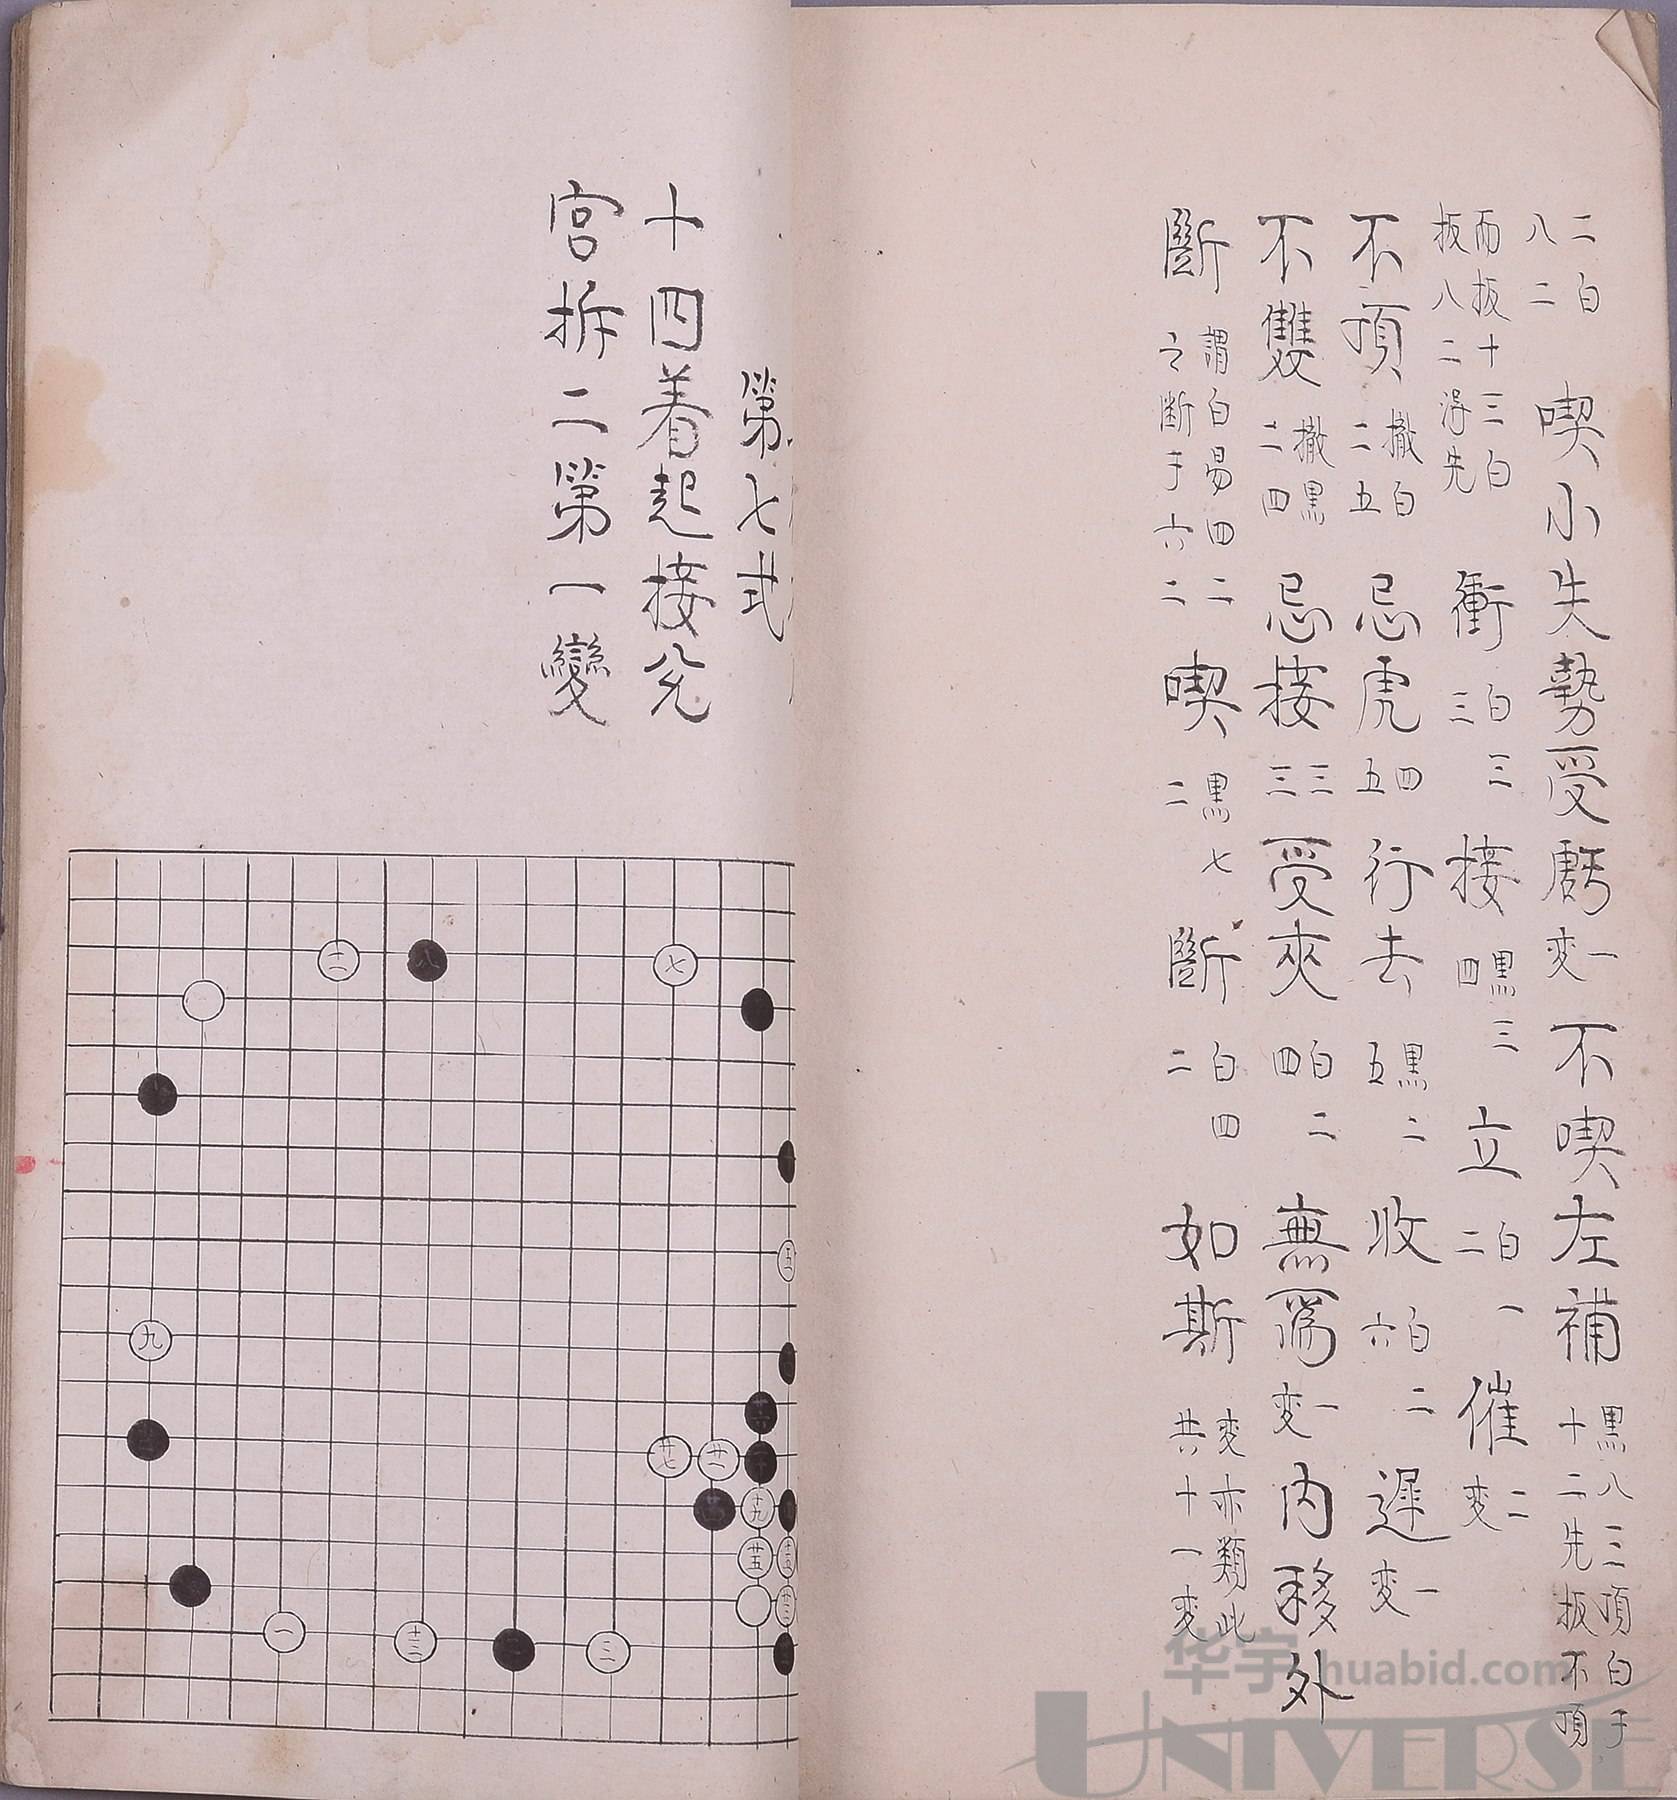 二白八二喫小失勢受虧一变不喫左補黒八三頂白于十二先扳不頂
而扳十三白扳八二得先衝白三三接黒三四立白一二催二变
不頂撤白二五忌虎四五行去黒二五收白二六遲一变
不雙撤黒二四忌接三三受夾白二四無爲一变內移外
斷謂白易四二之断于六二喫黒七二斷白四二如斯变亦類此共十一变
第七式
十四着起接兊
宮拆二第一變
十一
八
七
九
廿六
廿七
廿一
二十
十九
廿五
廿三
一
十三
二
三
华宇 huabid.com
UNIVERSE